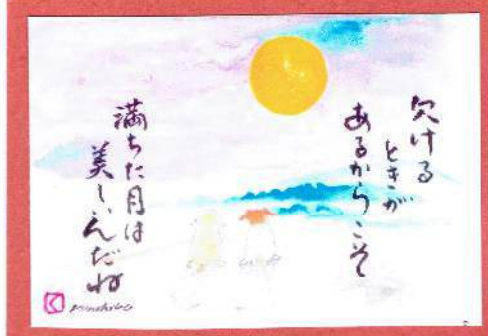 欠ける
ときが
あるからこそ
満ちた月は
美しいんだね